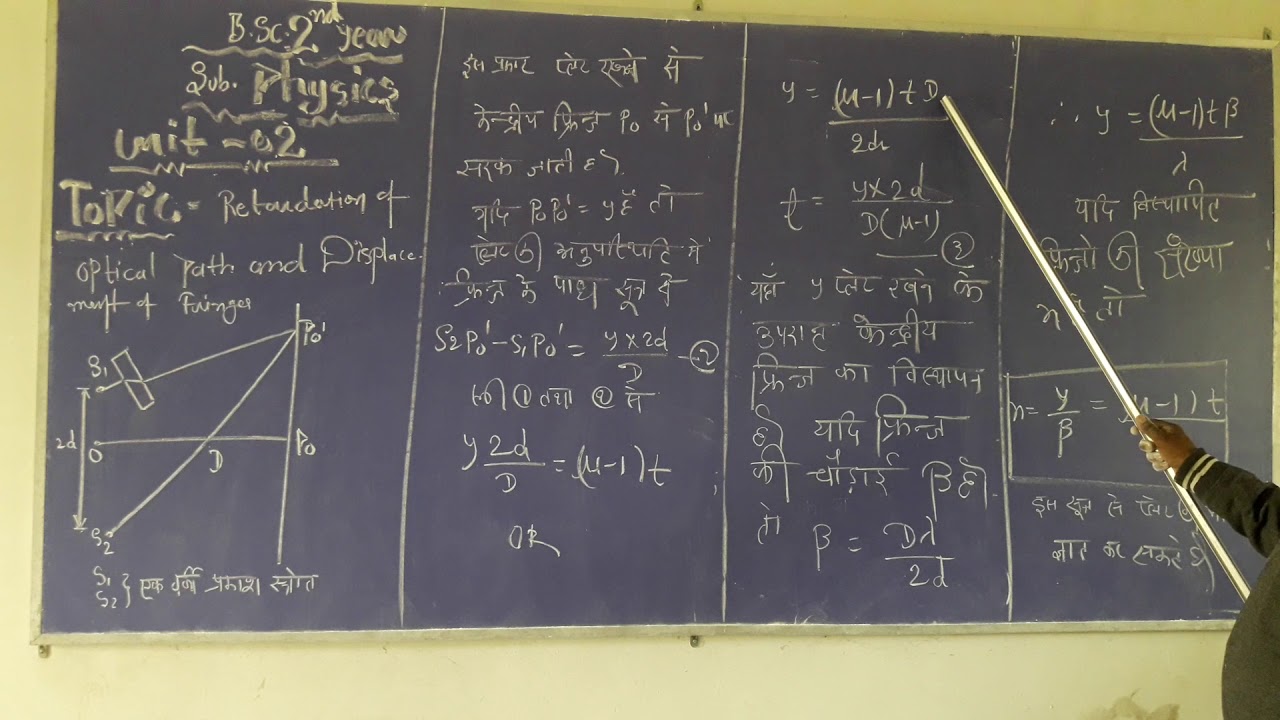 B.Sc. 2nd year
Sub. Physics
Unit - 02
Topic = Retardation of
optical Path and Displace-
ment of Fringes
S1
P0'
2d
O
P0
D
S2
S1
S2 } एक वर्णी प्रकाश स्त्रोत
इस प्रकार प्लेट रखने से
केन्द्रीय फ्रिन्ज P0 से P0' पर
सरक जाती है।
यदि P0P0' = y है तो
प्लेट की अनुपस्थिति में
फ्रिन्ज के पाथ सूत्र से
S2P0' - S1P0' = y x 2d / D - ②
① तथा ② से
y 2d / D = (μ-1) t
OR
y = (μ-1) t D / 2d
t = y x 2d / D(μ-1)
— ③
यहाँ y प्लेट रखने के
उपरान्त केन्द्रीय
फ्रिन्ज का विस्थापन
है। यदि फ्रिन्ज
की चौड़ाई β है।
तो β = Dλ / 2d
∴ y = (μ-1) t β / λ
यदि विस्थापित
फ्रिजों की संख्या
n है तो
n = y / β = (μ-1) t
इस सूत्र से प्लेट
ज्ञात कर सकते है।